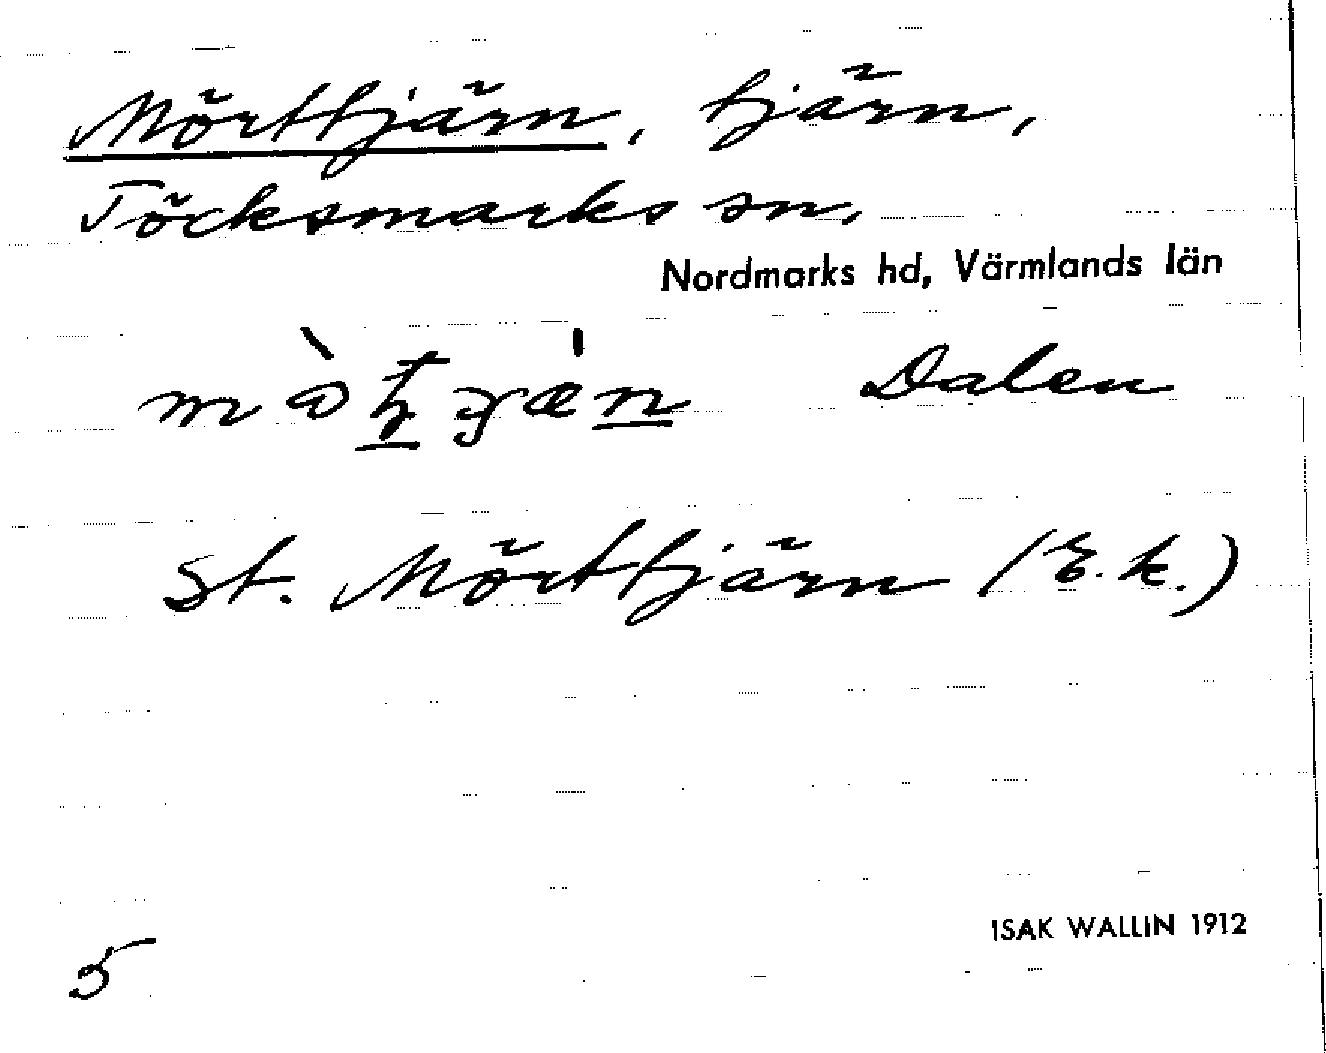 Mörttjärn, tjärn,
Töcksmarks sn,
Nordmarks hd, Värmlands län
Dalen
St. Mörttjärn (E.k.)
ISAK WALLIN 1912
5